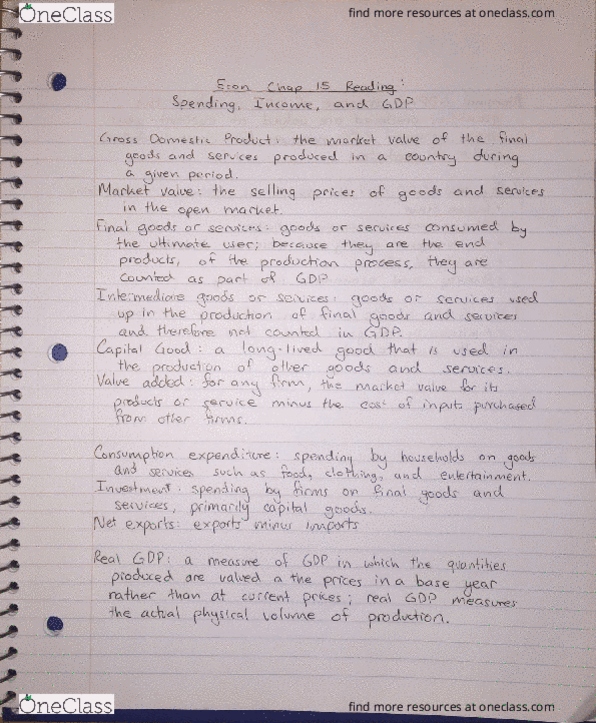 OneClass
find more resources at oneclass.com
Econ Chap 15 Reading:
Spending, Income, and GDP
Gross Domestic Product: the market value of the final
goods and services produced in a country during
a given period.
Market value: the selling prices of goods and services
in the open market.
Final goods or services: goods or services consumed by
the ultimate user; because they are the end
products, of the production process, they are
counted as part of GDP
Intermediate goods or services: goods or services used
up in the production of final goods and services
and therefore not counted in GDP.
Capital Good: a long-lived good that is used in
the production of other goods and services.
Value added: for any firm, the market value for its
products or service minus the cost of inputs purchased
from other firms.
Consumption expenditure: spending by households on goods
and services such as food, clothing, and entertainment.
Investment: spending by firms on final goods and
services, primarily capital goods.
Net exports: exports minus imports
Real GDP: a measure of GDP in which the quantities
produced are valued a the prices in a base year
rather than at current prices; real GDP measures
the actual physical volume of production.
OneClass
find more resources at oneclass.com